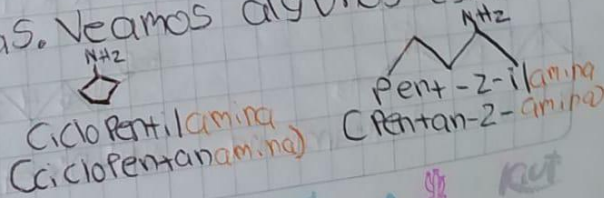 as. Veamos
NH2
Ciclopentilamina
(Ciclopentanamina)
NH2
Pent-2-ilamina
(Pentan-2-amina)